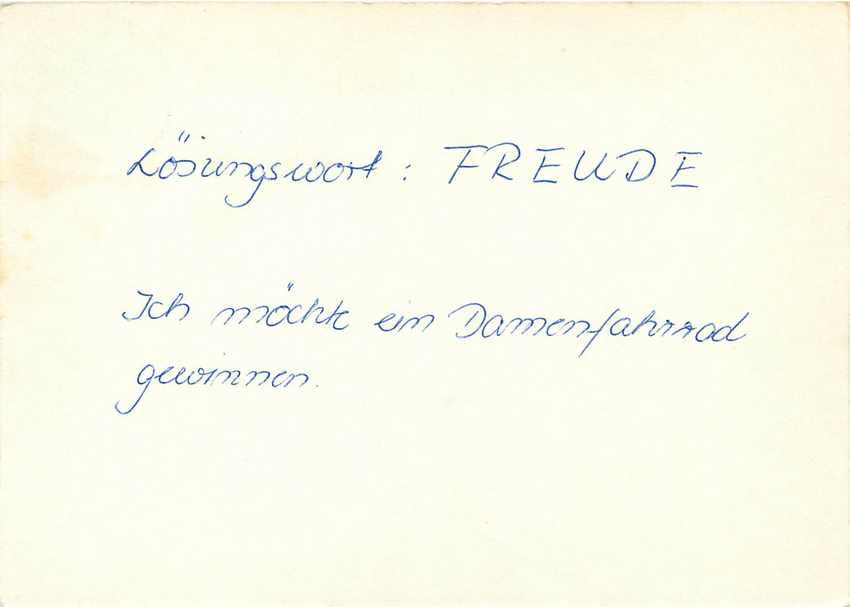 Lösungswort: FREUDE
Ich möchte ein Damenfahrrad
gewinnen.